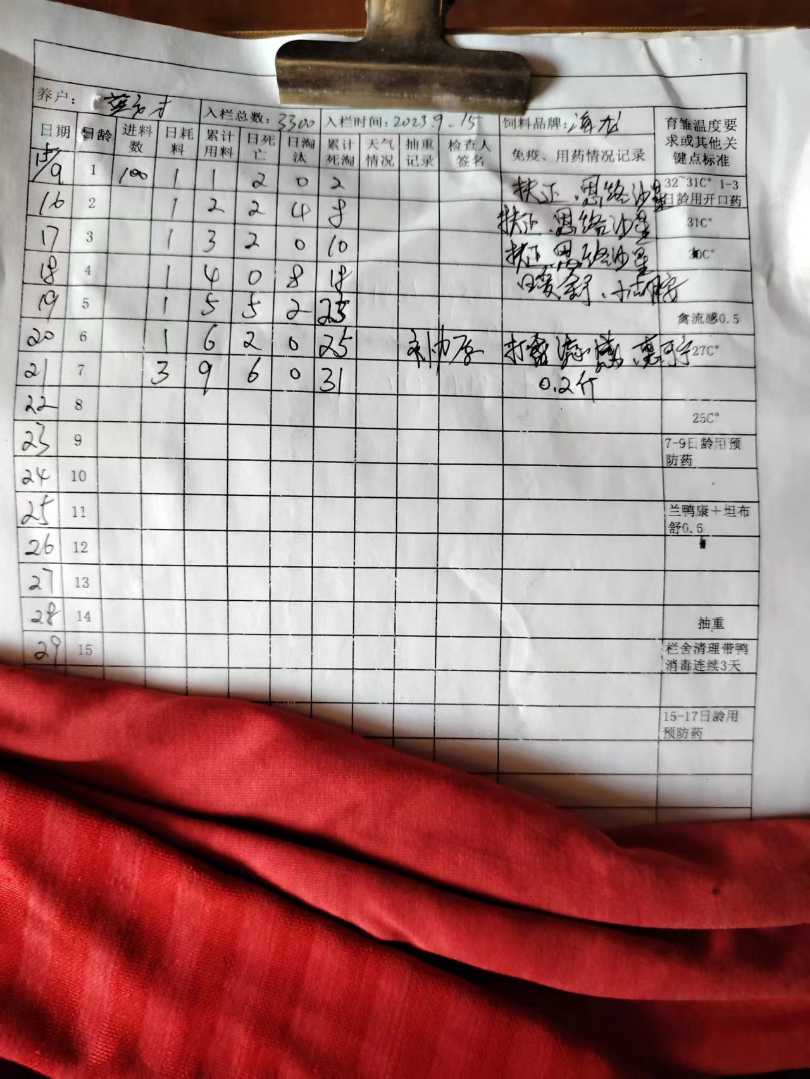 养户： 入栏总数：3300 入栏时间：2023.9.15 饲料品牌：海龙 育雏温度要求或其他关键点标准
日期 日龄 进料数 日耗料 累计用料 日死亡 日淘汰 累计死淘 天气情况 抽重记录 检查人签名 免疫、用药情况记录
15/9 1 100 1 1 2 0 2 恩络沙星 32~31C° 1-3日龄用开口药
16 2 1 2 2 4 8 恩络沙星 31C°
17 3 1 3 2 0 10 恩络沙星 30C°
18 4 1 4 0 8 18
19 5 1 5 5 2 23 禽流感0.5
20 6 1 6 2 0 25 27C°
21 7 3 9 6 0 31 0.2斤
22 8 25C°
23 9 7-9日龄用预防药
24 10
25 11 兰鸭康＋坦布舒0.6
26 12
27 13
28 14 抽重
29 15 栏舍清理带鸭消毒连续3天
15-17日龄用预防药